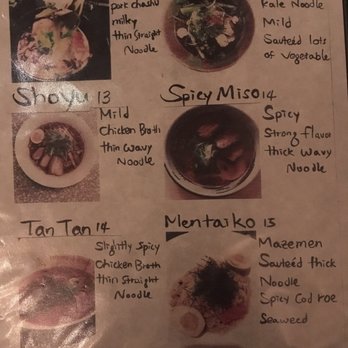 pork chashu
milky
thin straight
Noodle
Kale Noodle
Mild
Sauteéd lots
of Vegetable
Shoyu 13
Mild
Chicken Broth
thin wavy
Noodle
Spicy Miso 14
Spicy
Strong flavor
thick wavy
Noodle
Tan Tan 14
Slightly spicy
Chicken Broth
thin straight
Noodle
Mentaiko 13
Mazemen
Sauteéd thick
Noodle
Spicy Cod roe
Seaweed